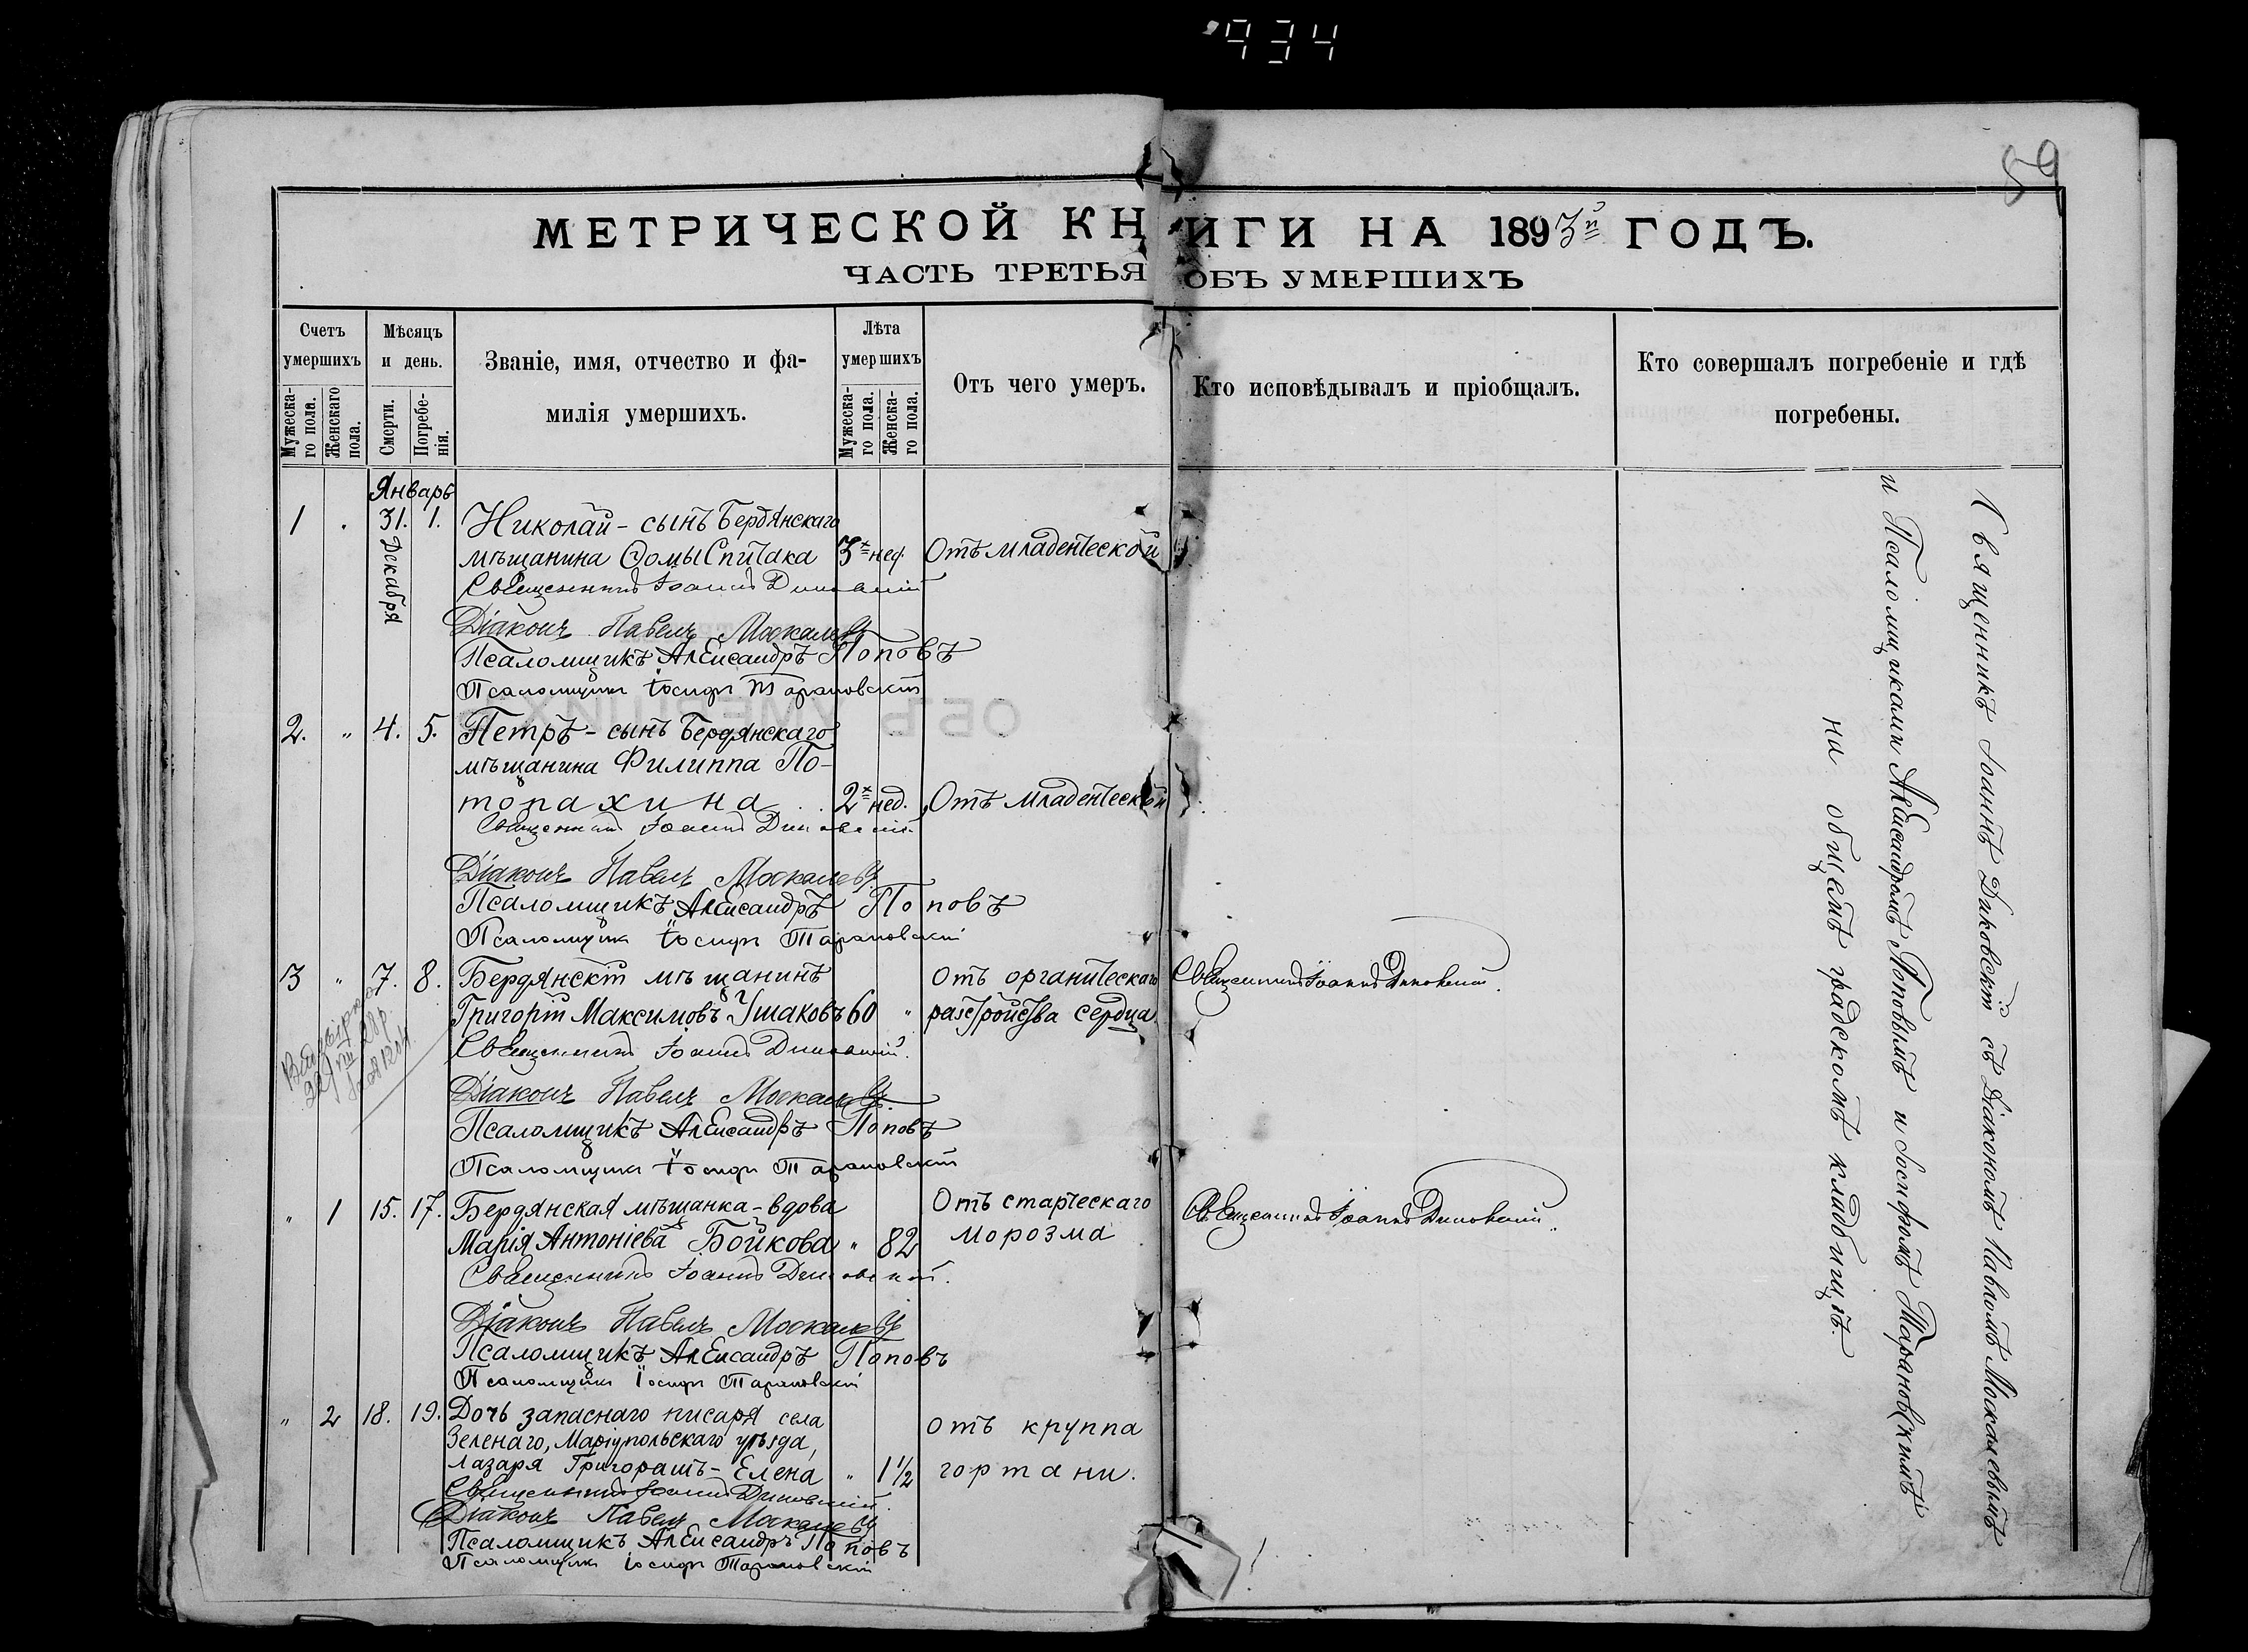 934
59
МЕТРИЧЕСКОЙ КНИГИ НА 1893й ГОДЪ.
ЧАСТЬ ТРЕТЬЯ ОБЪ УМЕРШИХЪ
Счетъ умершихъ
Мужеска-го пола.
Женскаго пола.
Мѣсяцъ и день.
Смерти.
Погребе-нія.
Званіе, имя, отчество и фа-
милія умершихъ.
Лѣта умершихъ
Мужеска-го пола.
Женска-го пола.
Отъ чего умеръ.
Кто исповѣдывалъ и пріобщалъ.
Кто совершалъ погребеніе и гдѣ
погребены.
Январь
1 31. Декабря 1. Николай - сынъ Бердянскаго
мѣщанина Ѳомы Спичака 3х нед. Отъ младенческой
Священникъ Іоаннъ Диковскій
Діаконъ Павелъ Москалевъ
Псаломщикъ Александръ Поповъ
Псаломщикъ Іосифъ Тарановскій
2. " 4. 5. Петръ - сынъ Бердянскаго
мѣщанина Филиппа По-
торахина 2х нед. Отъ младенческой
Священникъ Іоаннъ Диковскій
Діаконъ Павелъ Москалевъ
Псаломщикъ Александръ Поповъ
Псаломщикъ Іосифъ Тарановскій
3 " 7. 8. Бердянскій мѣщанинъ Отъ органическаго Священникъ Іоаннъ Диковскій.
Григорій Максимовъ Ушаковъ 60 " разстройства сердца.
Священникъ Іоаннъ Диковскій.
Діаконъ Павелъ Москалевъ.
Псаломщикъ Александръ Поповъ
Псаломщикъ Іосифъ Тарановскій
" 1 15. 17. Бердянская мѣщанка - вдова Отъ старческаго Священникъ Іоаннъ Диковскій.
Марія Антоніева Бойкова " 82 морозма
Священникъ Іоаннъ Диковскій.
Діаконъ Павелъ Москалевъ
Псаломщикъ Александръ Поповъ
Псаломщикъ Іосифъ Тарановскій
" 2 18. 19. Дочь запаснаго писаря села Отъ круппа
Зеленаго, Маріупольскаго уѣзда,
Лазаря Григорашъ - Елена " 1 1/2 гортани.
Священникъ Іоаннъ Диковскій.
Діаконъ Павелъ Москалевъ
Псаломщикъ Александръ Поповъ
Псаломщикъ Іосифъ Тарановскій
Священникъ Іоаннъ Диковскій съ Діакономъ Павломъ Москалевымъ
и Псаломщиками Александромъ Поповымъ и Іосифомъ Тарановскимъ
на общемъ градскомъ кладбищѣ.